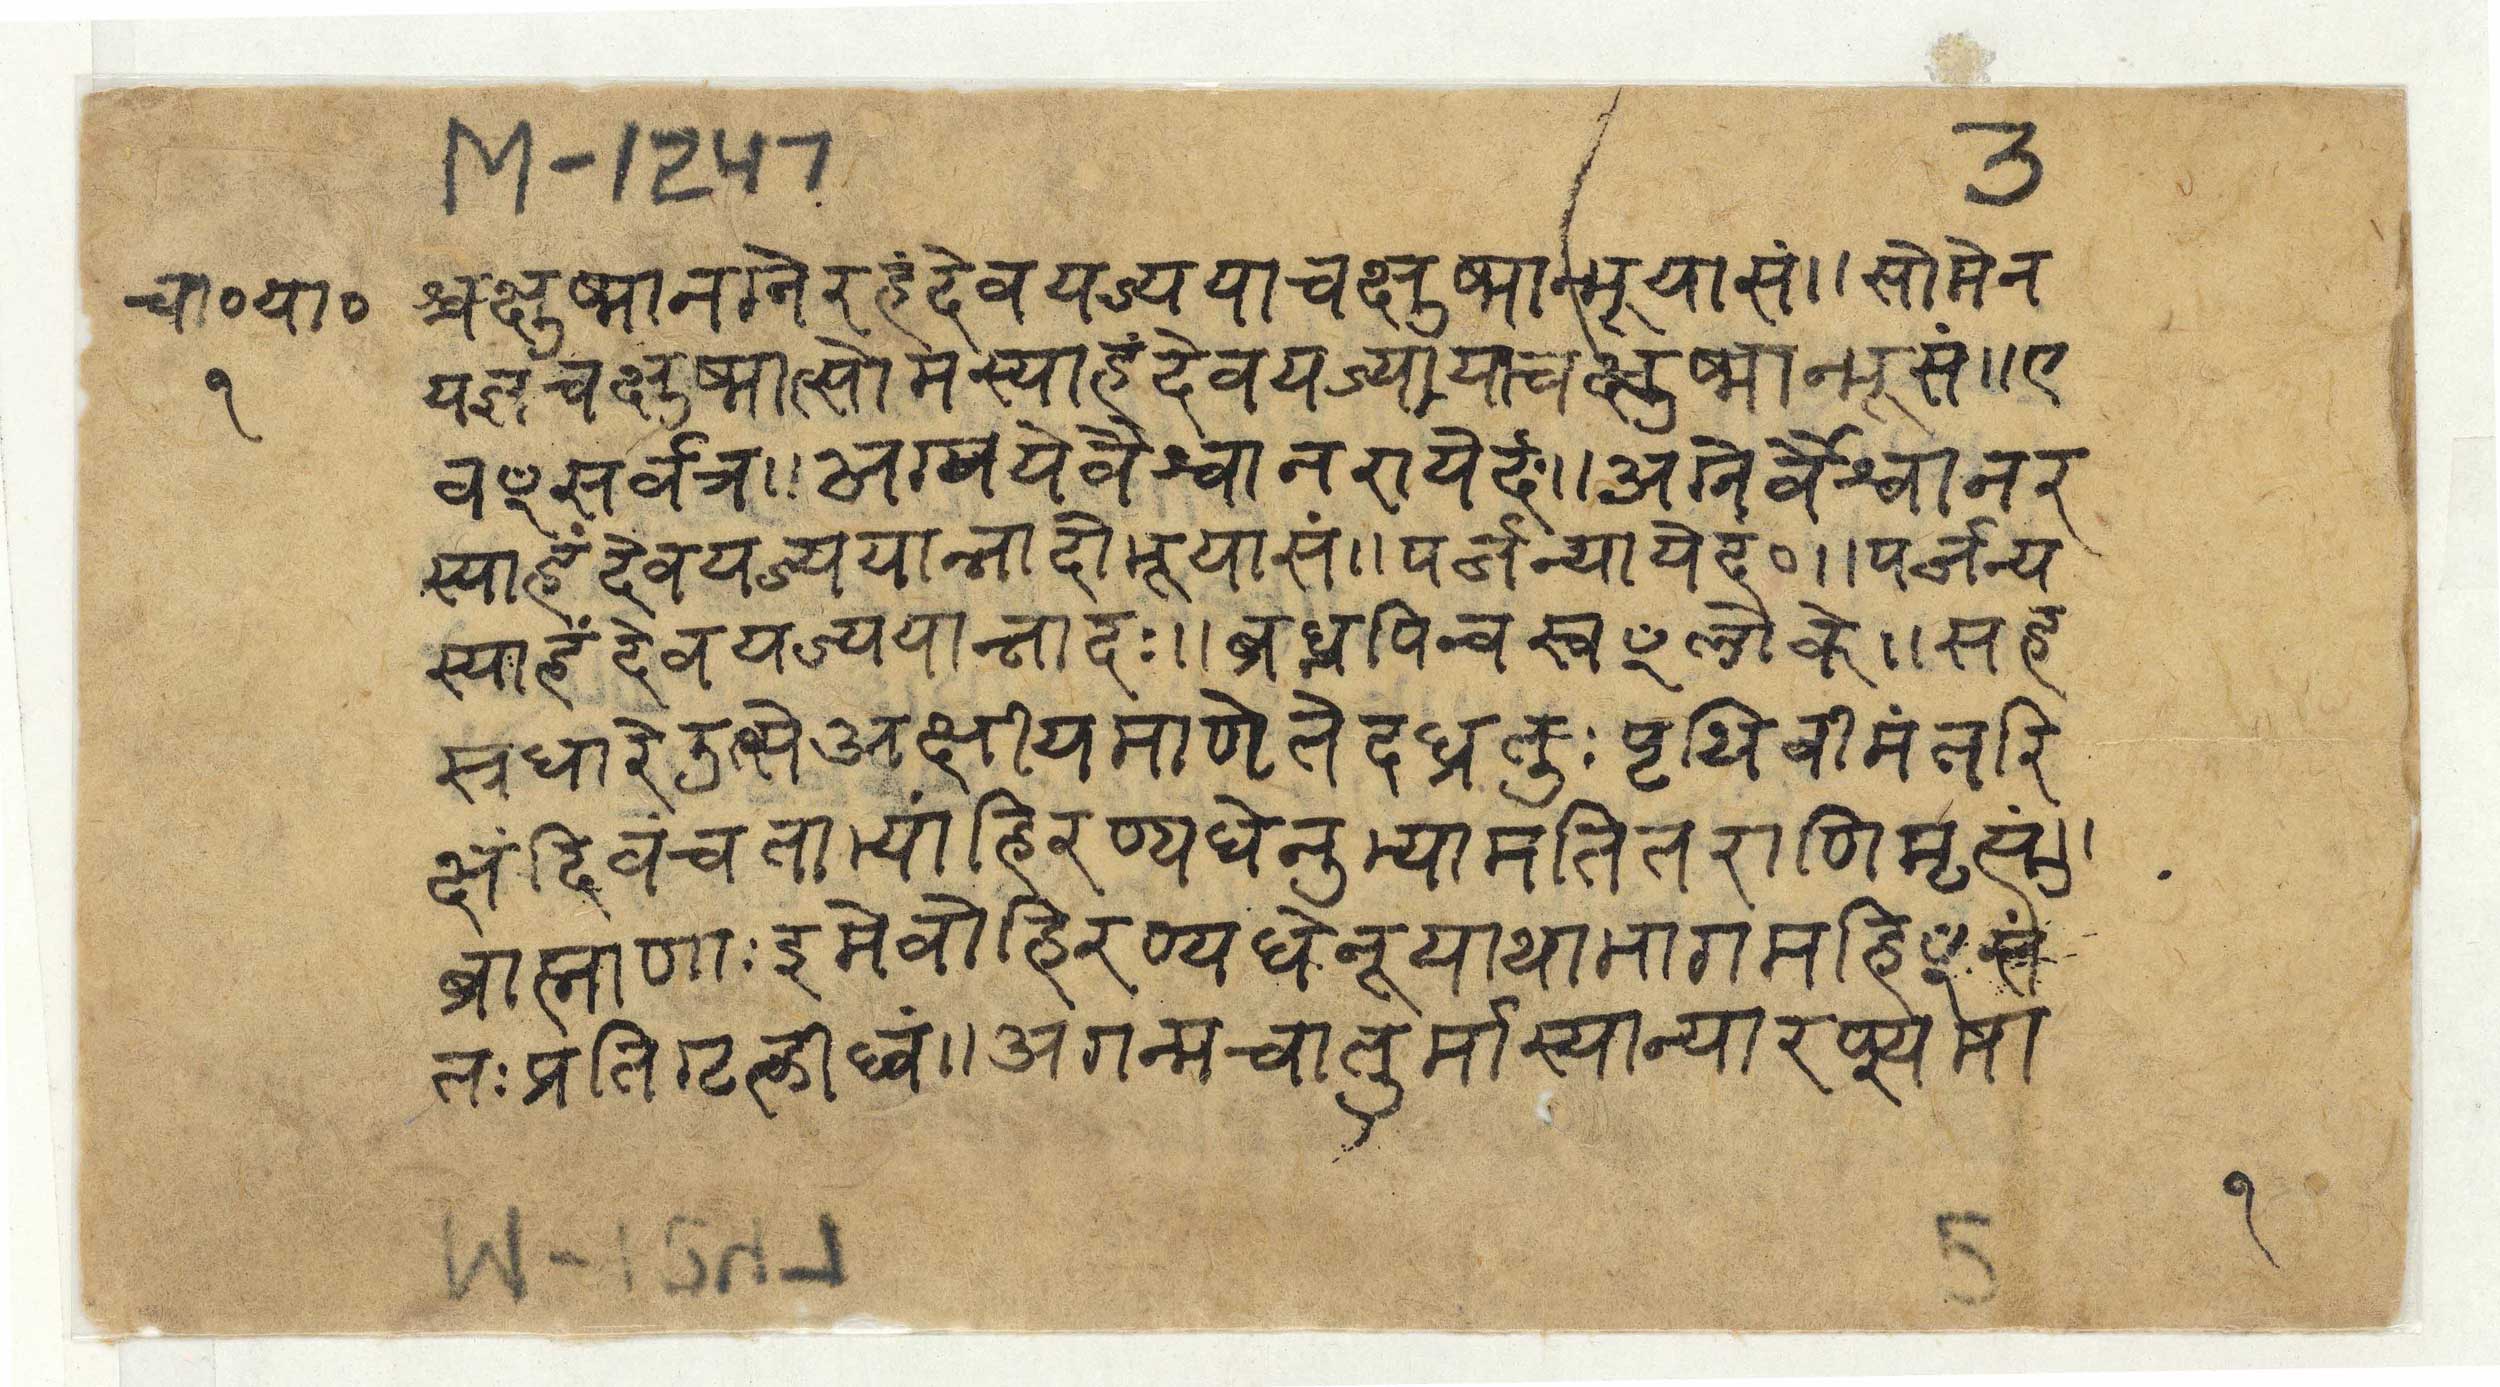 M-1247
3
चा०या०
१
श्चक्षुष्मानग्नेरहंदेवयज्ययाचक्षुष्मान्भूयासं॥सोमेन
यज्ञंचक्षुष्मात्सोमस्याहंदेवयज्यायाचक्षुष्मान्भूसं॥ए
वꣳसर्वत्र॥अग्नयेवैश्वानरायेदं॥अग्नेर्वैश्वानर
स्याहंदेवयज्ययान्नादोभूयासं॥पर्जन्यायेदं०॥पर्जन्य
स्याहंदेवयज्ययान्नादः॥ब्रध्नपिन्वस्वꣳलोके॥सह
स्रधारेउत्सेअक्षीयमाणेतेदध्रतुःपृथिवीमंतरि
क्षंदिवंचताभ्यांहिरण्यधेनुभ्यामतितराणिमृत्युं॥
ब्राह्मणाःइमेवोहिरण्यधेनूयाथाभागमहिꣳसं
तःप्रतिगृह्णीध्वं॥अगन्मचातुर्मास्यान्यारप्स्यमा
M-1247
5
१